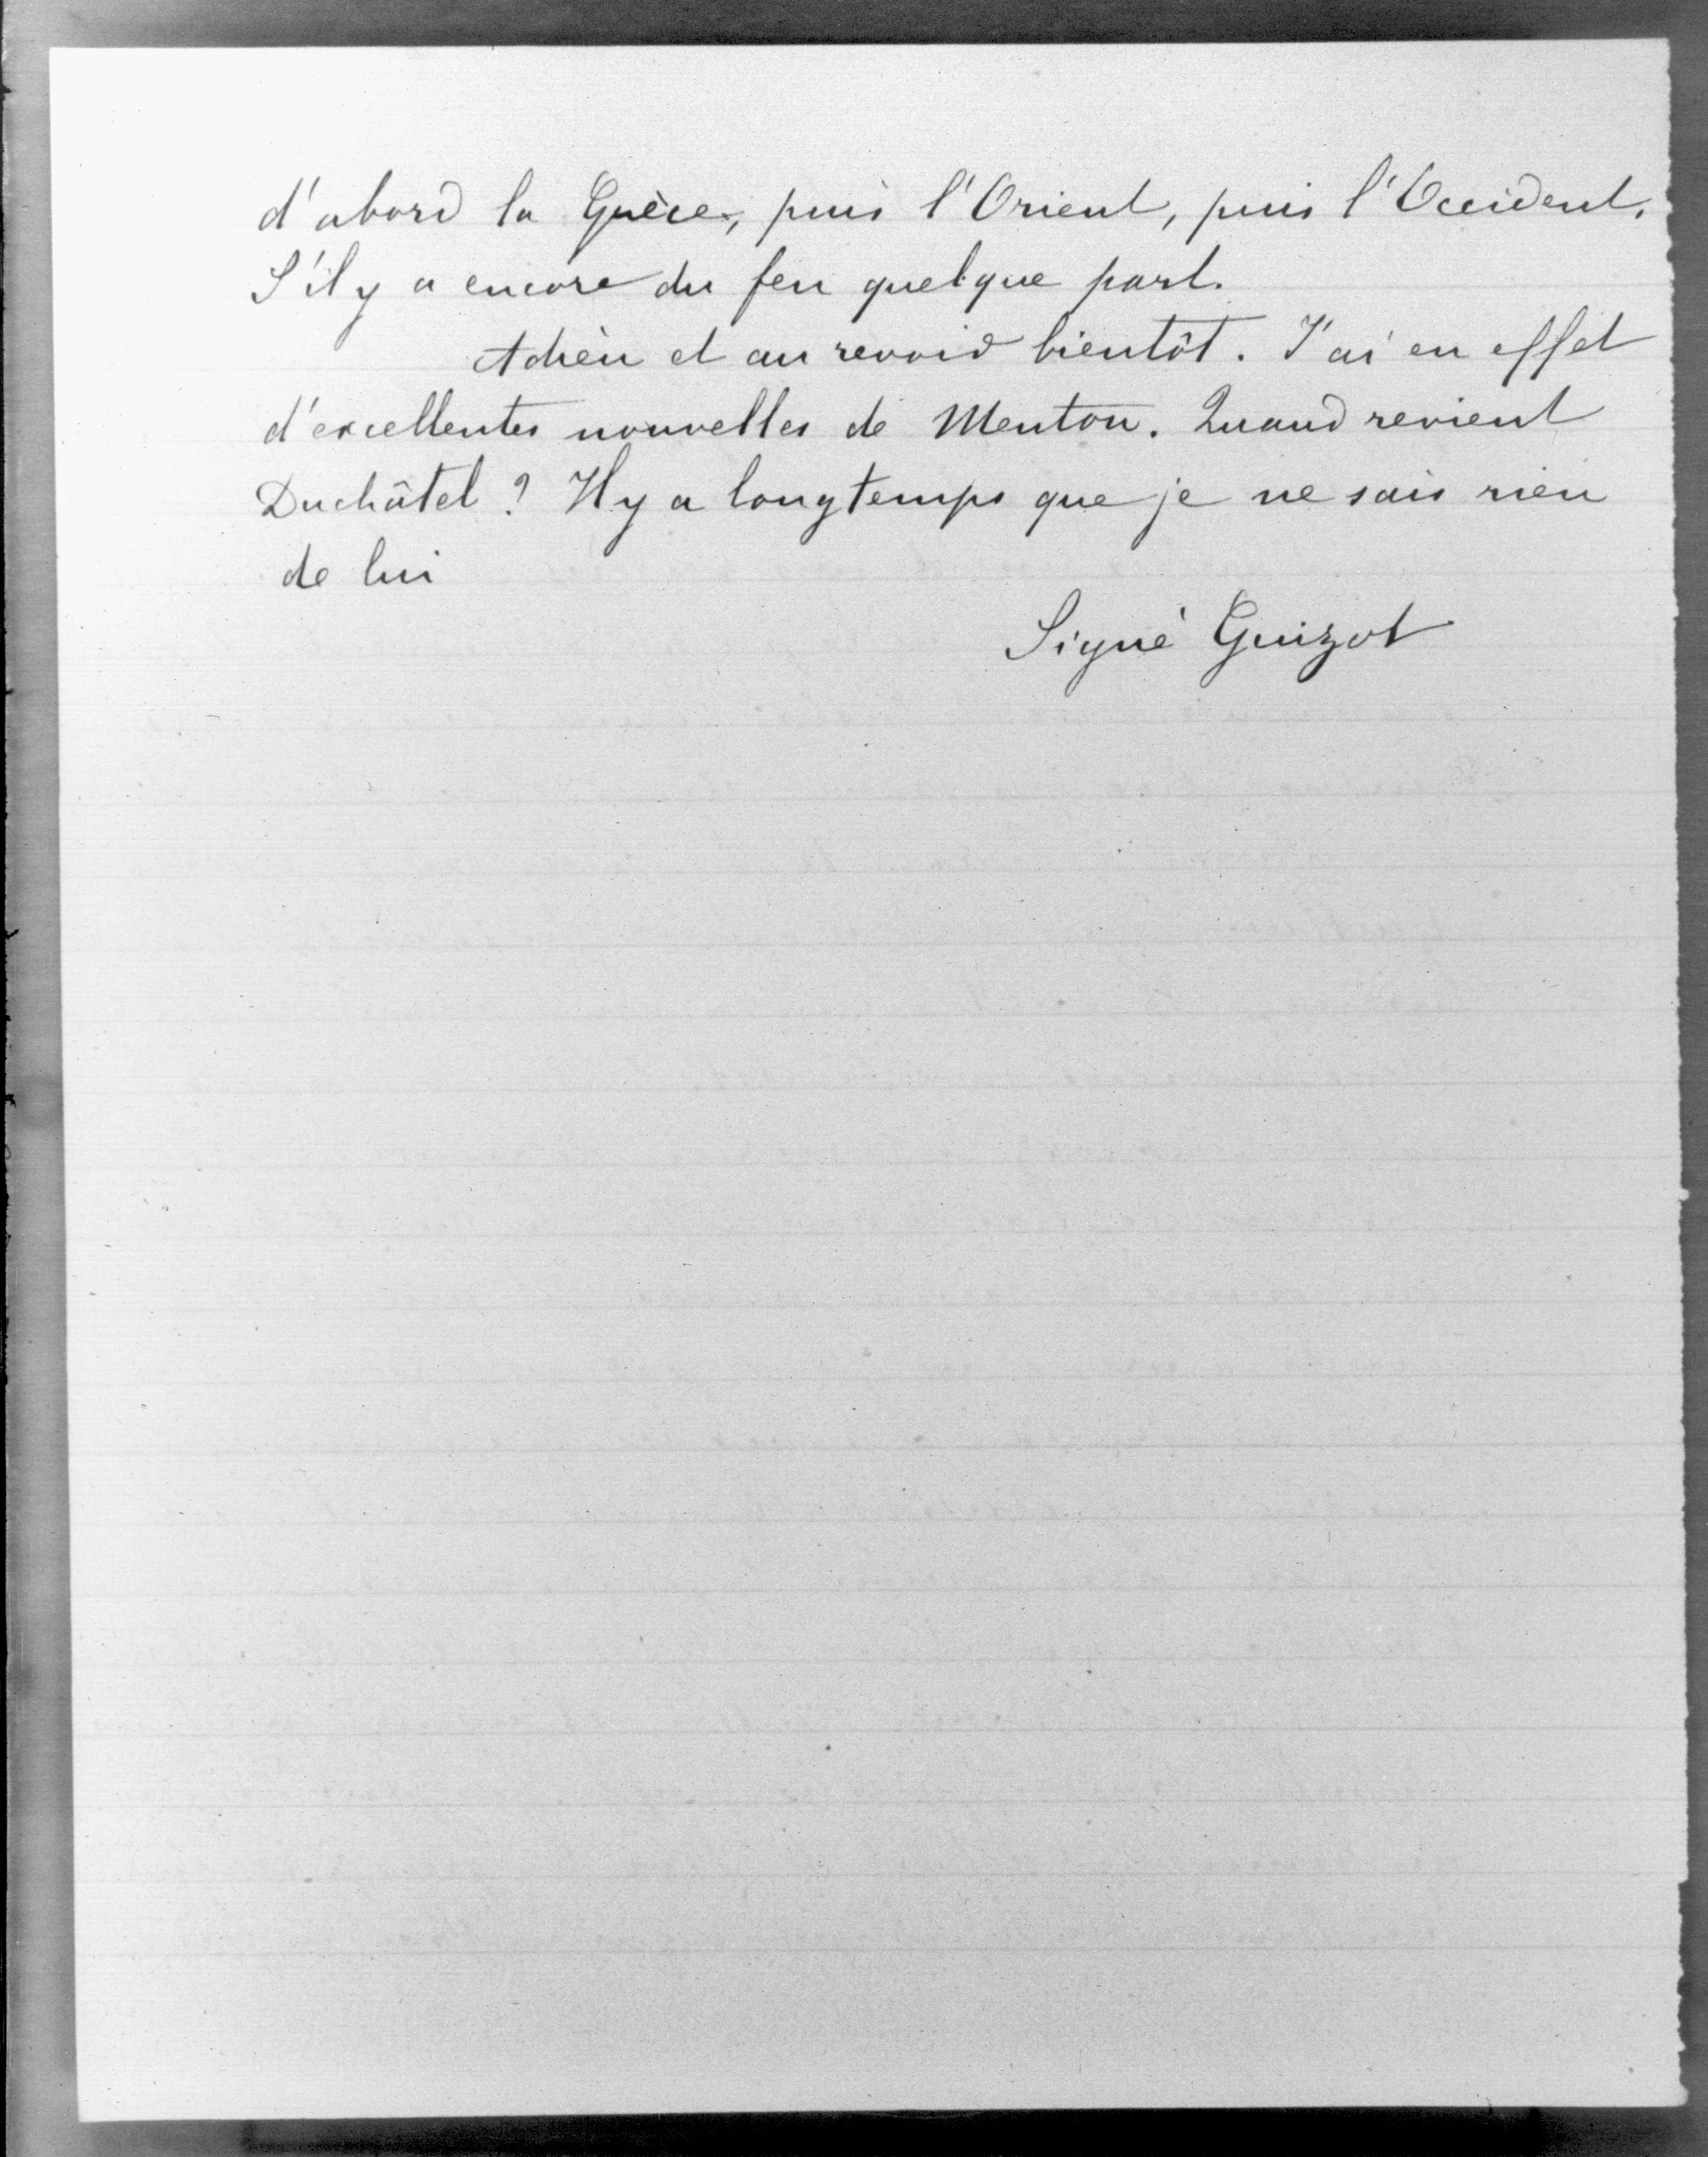 d'abord la Grèce, puis l'Orient, puis l'Occident.
S'il y a encore du feu quelque part.
Adieu et au revoir bientôt. J'ai en effet
d'excellentes nouvelles de Menton. Quand revient
Duchâtel ? Il y a longtemps que je ne sais rien
de lui
Signé Guizot